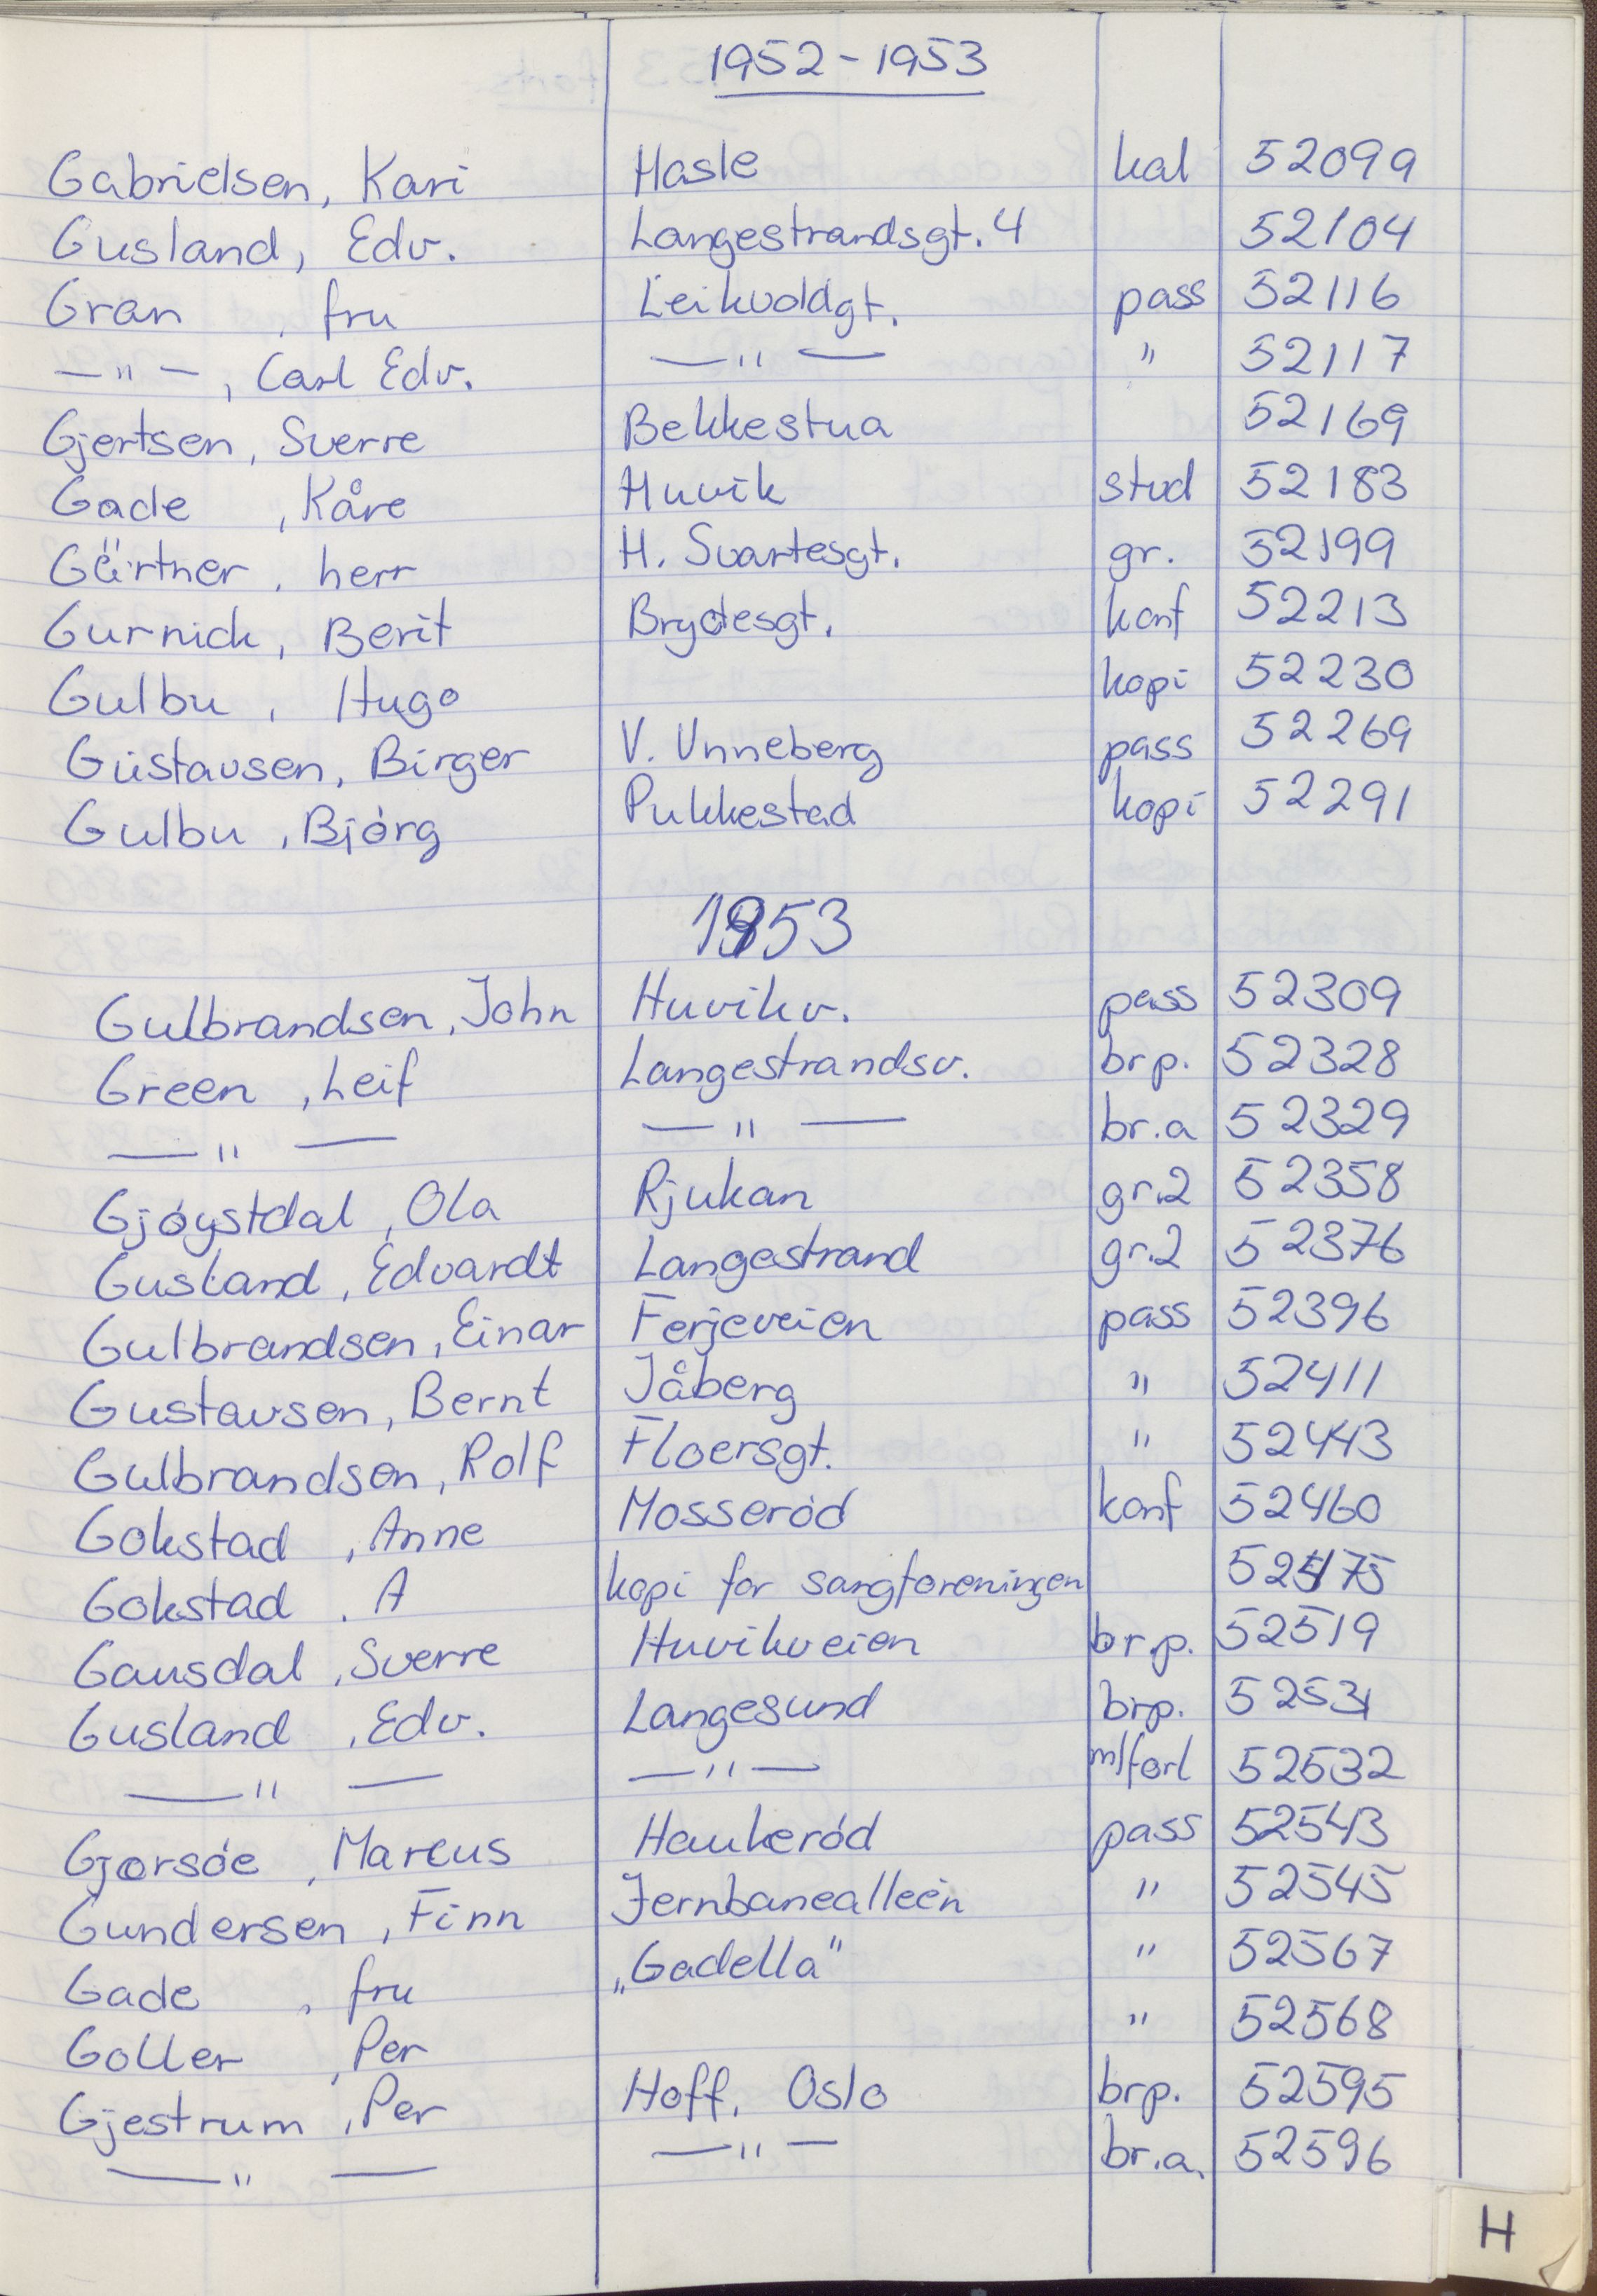 1952 - 1953
Gabrielsen, Kari Hasle kal 52099
Gusland, Edv. Langestrandsgt. 4 52104
Gran , fru Leikvoldgt. pass 52116
— " — , Carl Edv. — " — " 52117
Gjertsen, Sverre Bekkestua 52169
Gade , Kåre Huvik stud 52183
Gärtner , herr H. Svartesgt. gr. 52199
Gurnick, Berit Brydesgt. konf 52213
Gulbu , Hugo kopi 52230
Gustavsen, Birger V. Unneberg pass 52269
Gulbu , Bjórg Pukkestad kopi 52291
1953
Gulbrandsen, John Huvikv. pass 52309
Green , Leif Langestrandsv. brp. 52328
— " — — " — br.a 52329
Gjóystdal , Ola Rjukan gr.2 52358
Gusland , Edvardt Langestrand gr.2 52376
Gulbrandsen, Einar Ferjeveien pass 52396
Gustavsen, Bernt Jåberg " 52411
Gulbrandsen, Rolf Floersgt. " 52443
Gokstad , Anne Mosseród konf 52460
Gokstad , A kopi for sangforeningen
Gausdal , Sverre Huvikveien br.p. 52519
Gusland , Edv. Langesund brp. 52531
— " — — " — m/forl 52532
Gjorsóe , Marcus Haukeród pass 52543
Gundersen , Finn Jernbanealleén " 52545
Gade , fru „Gadella" " 52567
Goller , Per " 52568
Gjestrum , Per Hoff, Oslo brp. 52595
— " — — " — br.a. 52596
H